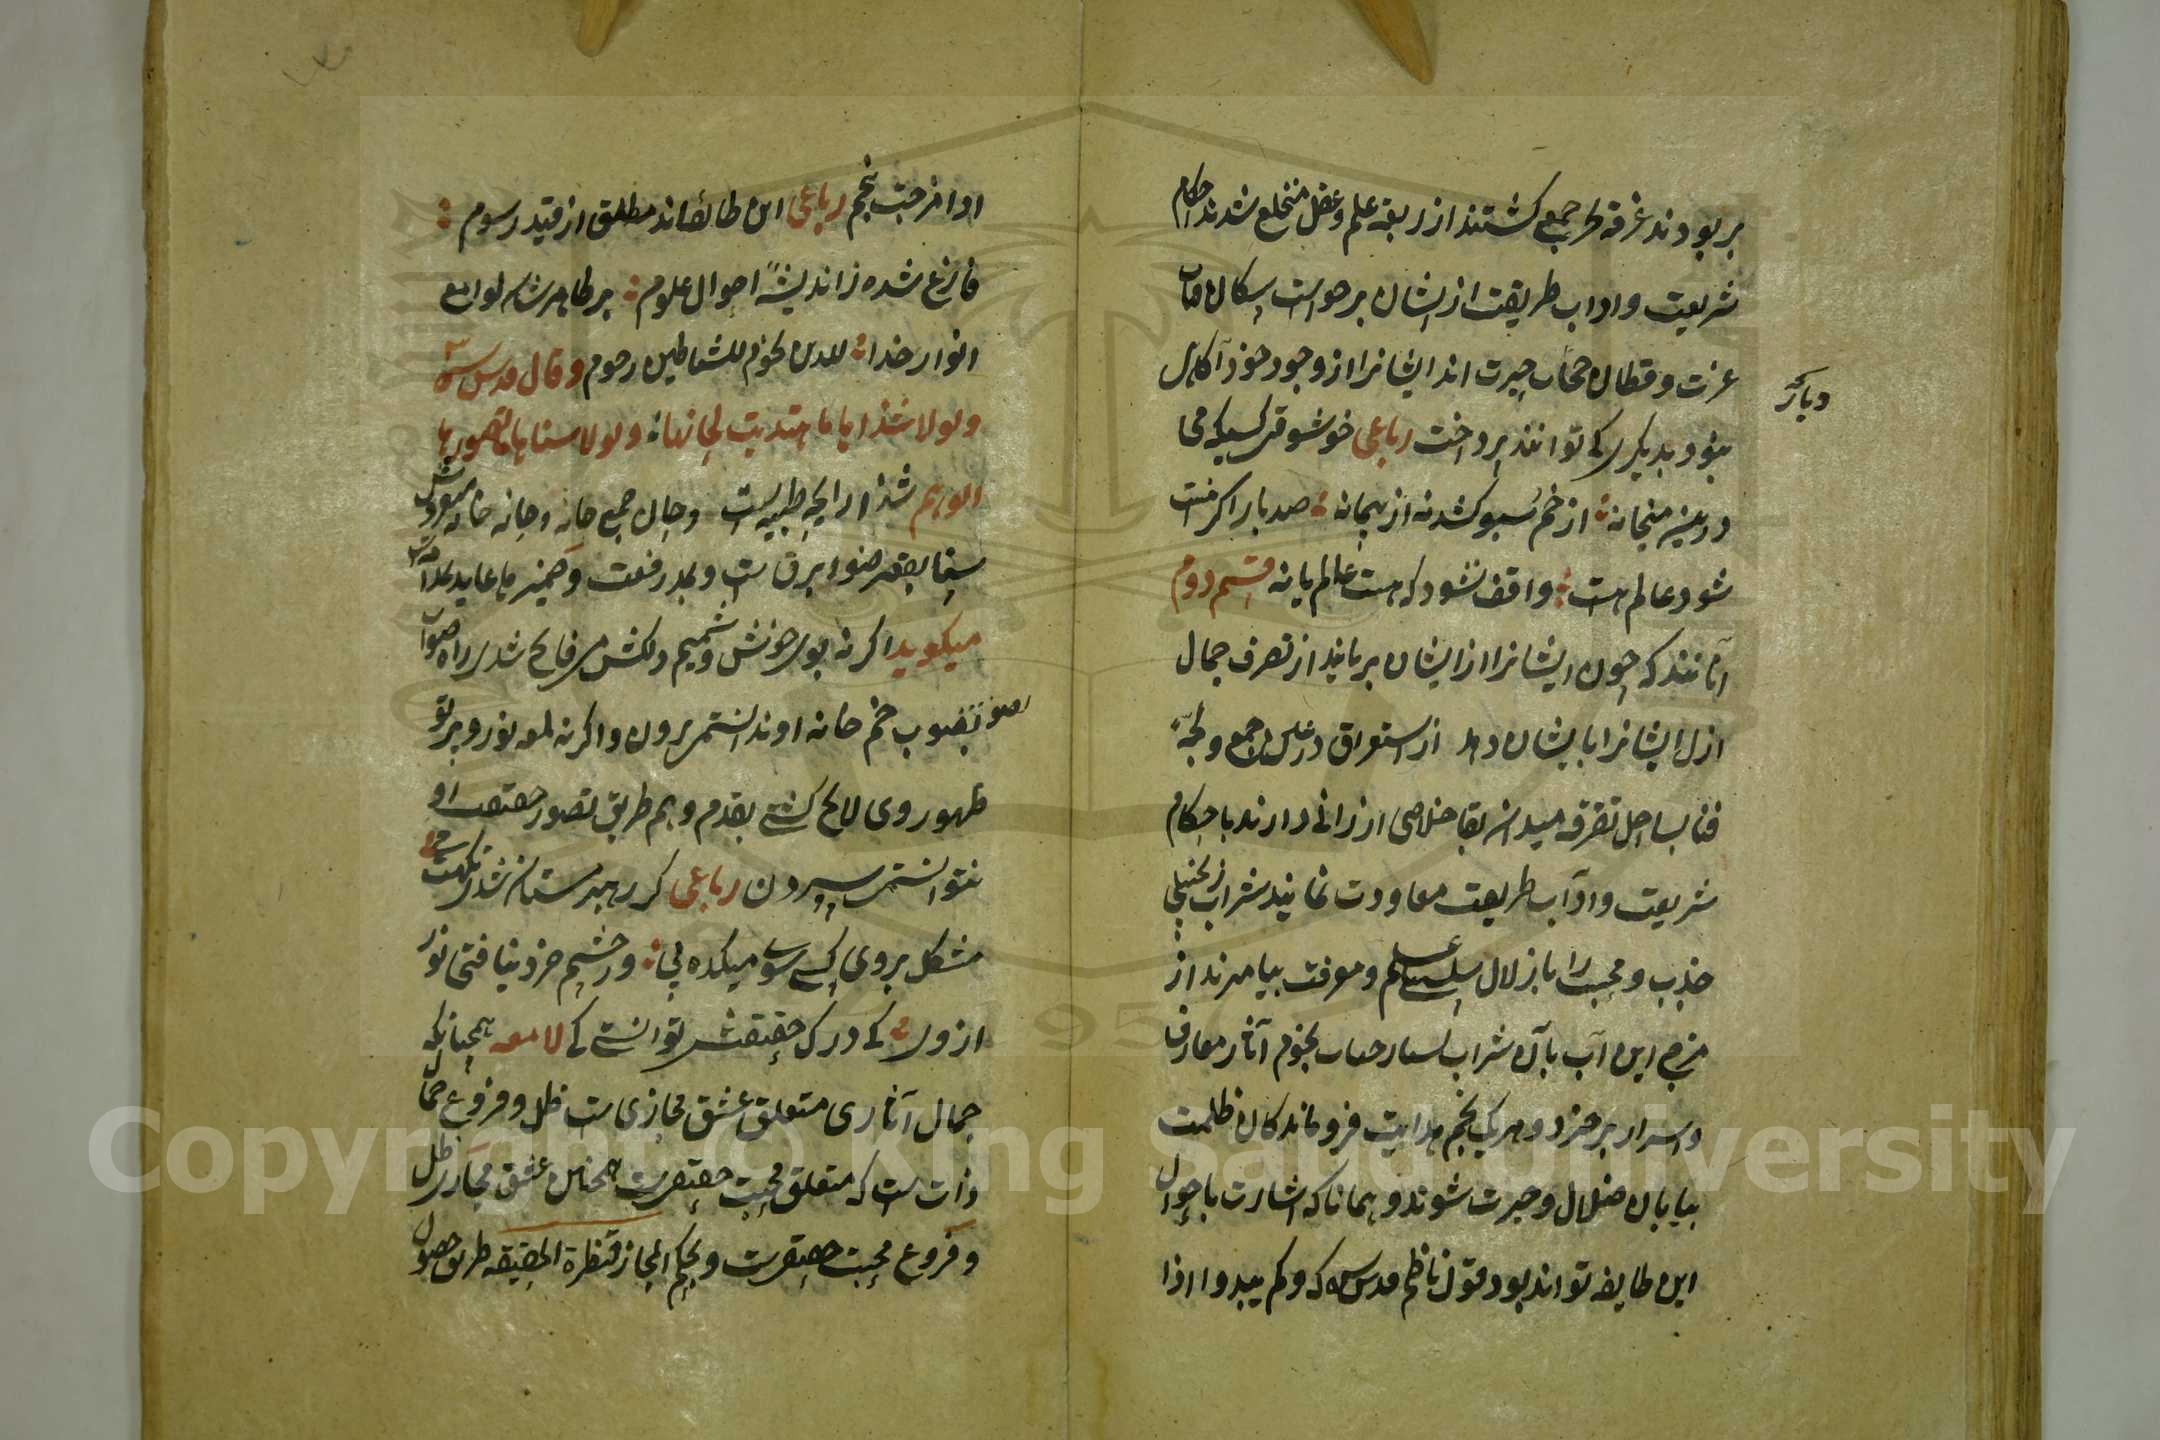 بربودند غرقه لجه جمع گشتند از ربقه علم و عقل منخلع شدند احکام
شریعت و اداب طریقت از ایشان برخواست سکان قباب
عزت و قطان حجاب حیرت اند ایشانرا از وجود خود آکاهی
دیارکه
نبود بدیکری کی توانند پرداخت رباعی خوشوقت کسیکه می
درین میخانه از خم بسبو کشد نه از پیمانه صد بار اکر نیست
شود عالم هست واقف نشود که هست عالم یا نه قسم دوم
آنانند که چون ایشانرا از ایشان بربایند از تصرف جمال
ازل ایشانرا بایشان دهد از استغراق در عین جمع و لجهٔ
فنا بساحل تفرقه و میدان بقا خلاصی ارزانی دارند باحکام
شریعت و آداب طریقت معاودت نمایند شراب زنجبیلی
جذب و محبت را با زلال سلسبیل علم و معرفت بیامیزند از
مزج این آب بآن شراب بسیار حباب نجوم آثار معارف
و اسرار برخیزد و هر یک نجم هدایت فرو ماندکان ظلمت
بیابان ضلال و حیرت شوند و همانا که اشارت باحوال
این طایفه تواند بود قول ناظم قدس سره که و کم یبدو اذا
اذا مزجت نجم رباعی این طائفه‌اند مطلق از قید رسوم
فارغ شده ز اندیشهٔ احوال علوم بر ظاهرشان لوامع
انوار خدا للدین نجوم للشیاطین رجوم و قال قدس سره
و لولا شذاها ما اهتدیت لحانها و لولا سناها ما تصورها
الوهم شذا رایحه طیبه است و حان جمع حانه و حانه خانه میفروش
سنا بقصر ضوء برق است و بمد رفعت و ضمیر ها عاید بمدامه
میکوید اکر نه بوی خوش و شمیم دلکش می فایح شدی راه صواب
بصوب خم خانه او ندانستمی بردن و اکر نه لمعه نور و پرتو
ظهور وی لایح کشتی بقدم وهم طریق تصور حقیقت او
نتوانستمی سپردن رباعی کر رهبر مستان نشدی نکهت می
مشکل بردی کسی سوی میکده پی ور چشم خرد نیافتی نور
از وی کی درک حقیقتش توانستی کی لامعه همچنانکه
جمال آثاری متعلق عشق مجازی است ظل و فروع جمال
ذات است که متعلق محبت حقیقیست همچنان عشق مجازی ظل
و فروع محبت حقیقیست و بحکم المجاز قنطرة الحقیقه طریق حصول
Copyright © King Saud University
1957